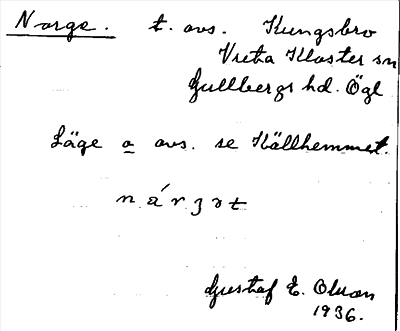 Norge. t. avs. Kungsbro
Vreta Kloster sn
Gullbergs hd. Ögl
Läge o avs. se Källhemmet.
Gustaf E. Olson
1936.